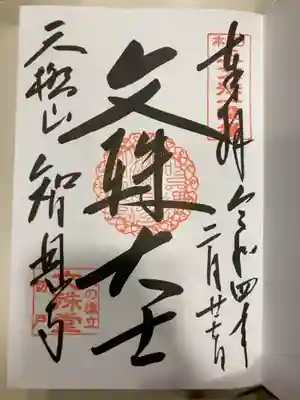 奉拝 令和四年
二月廿七日
文殊大士
天橋山 智恩寺
の橋立
文殊堂